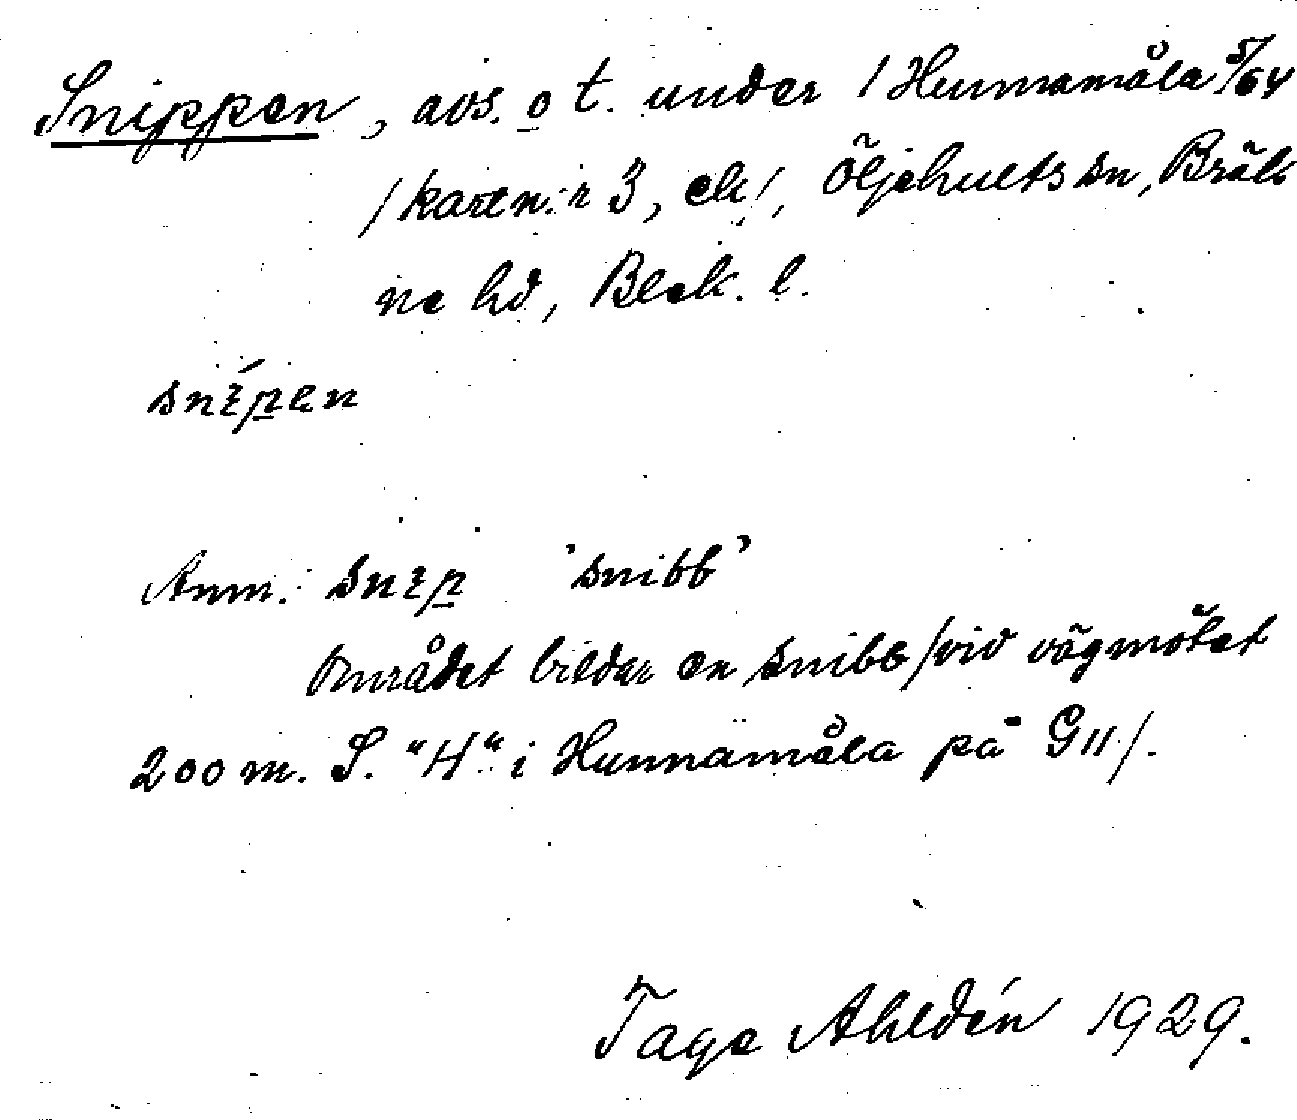 Snippen, avs. o t. under 1 Hunnamåla 5/64
/kartn:r 3, ek/, Öljehults sn, Bräk
ne hd, Blek. l.
snípen
Anm. snip 'snibb'
Området bildar en snibb /vid vägmötet
200 m. S. "H" i Hunnamåla på G11/.
Tage Ahldén 1929.